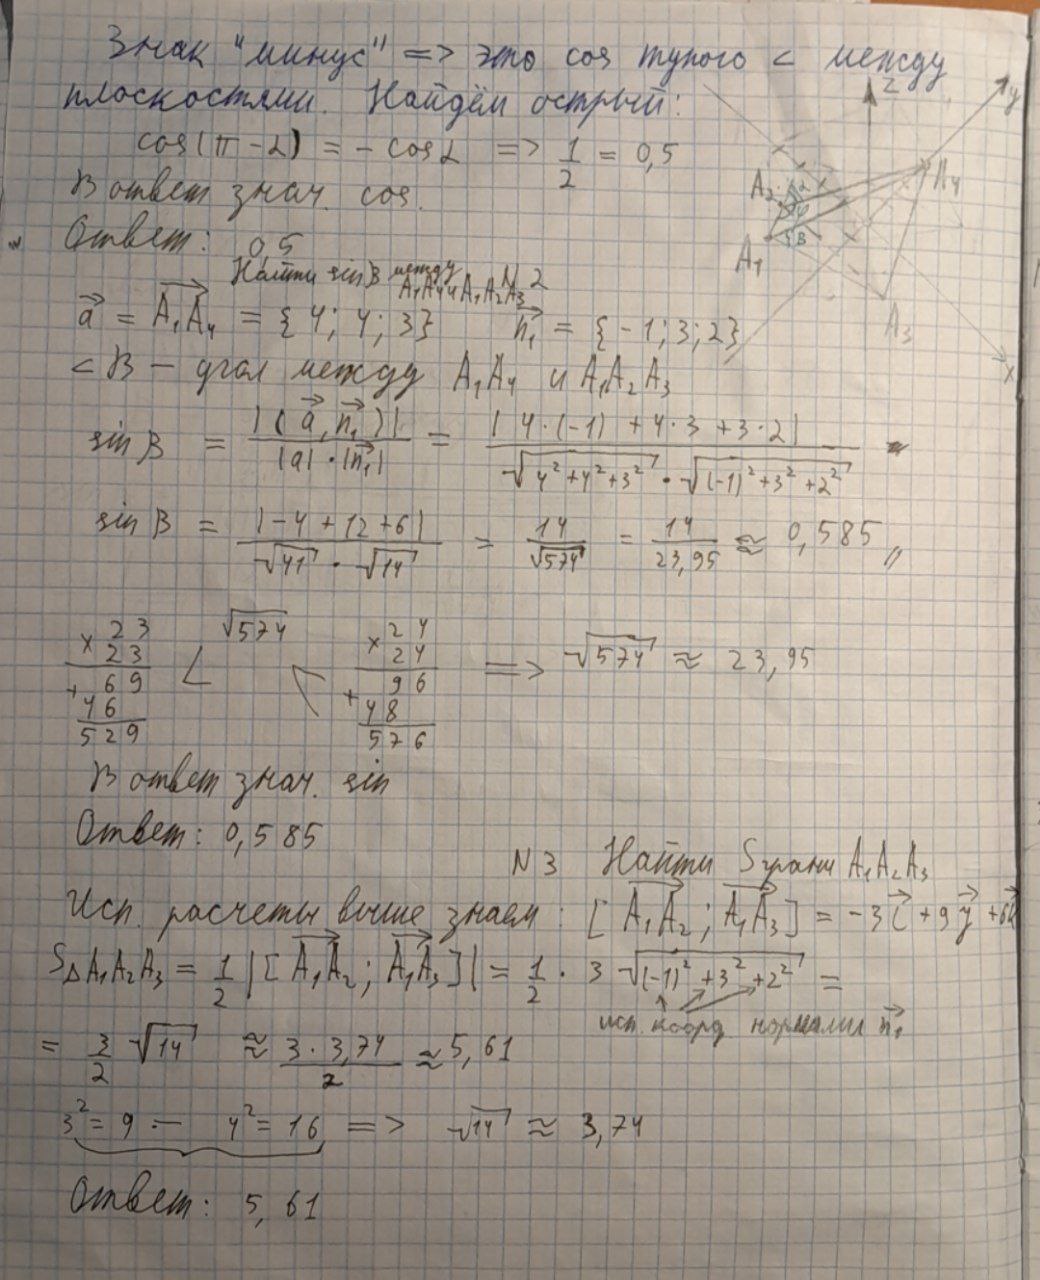 Знак "минус" => это cos тупого < между
плоскостями. Найдём острый:
cos(π - α) = - cos α => 1/2 = 0,5
В ответ знач. cos.
Ответ: 0,5
N 2
Найти sin B между A₁A₄ и A₁A₂A₃
a⃗ = A₁A₄ = {4; 4; 3} n₁⃗ = {-1; 3; 2}
< B — угол между A₁A₄ и A₁A₂A₃
sin B = |(a⃗, n₁⃗)| / |a|·|n₁| = |4·(-1) + 4·3 + 3·2| / √(4²+4²+3²) · √((-1)²+3²+2²) =
sin B = |-4 + 12 + 6| / √41 · √14 = 14/√574 = 14/23,95 ≈ 0,585
23 × 23 69 + 46 529 < √574 < 24 × 24 96 + 48 576 => √574 ≈ 23,95
В ответ знач. sin
Ответ: 0,585
N 3 Найти S грани A₁A₂A₃
Исп. расчеты выше знаем: [A₁A₂; A₁A₃] = -3i⃗ + 9j⃗ + 6k⃗
S△A₁A₂A₃ = 1/2 |[A₁A₂; A₁A₃]| = 1/2 · 3 √((-1)²+3²+2²) =
исп. коорд. нормали n₁⃗
= 3/2 √14 ≈ 3·3,74/2 ≈ 5,61
3² = 9 — 4² = 16 => √14 ≈ 3,74
Ответ: 5,61
z
y
A₂
A₄
A₁
B
A₃
x